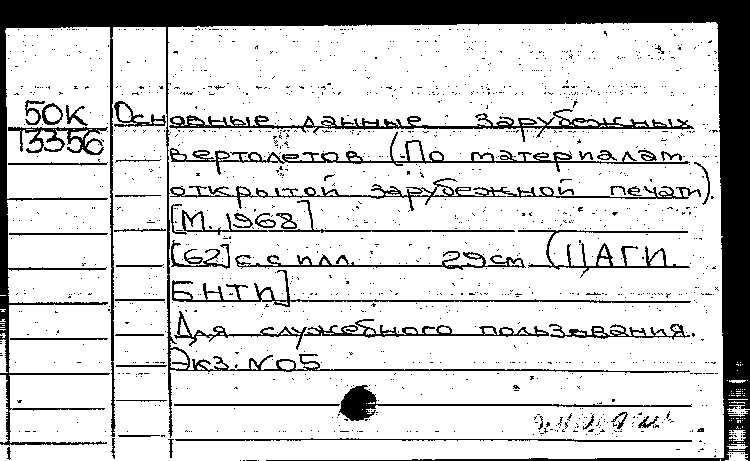 50К Основные данные зарубежных
13356 вертолетов (По материалам
открытой зарубежной печати).
[М., 1968]
[62] с. с илл. 29 см. (ЦАГИ.
БНТИ]
Для служебного пользования.
Экз. № 05